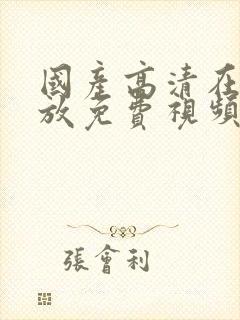 國產高清在
放免費視頻
張會利